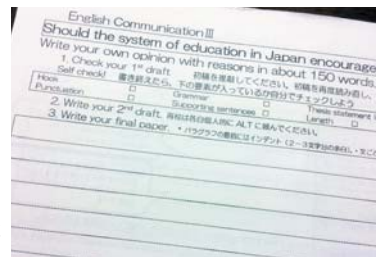 English Communication Ⅲ
Should the system of education in Japan encourage
Write your own opinion with reasons in about 150 words.
1. Check your 1st draft. 初稿を推敲してください。初稿を再度読み直し、
Self check! 書き終えたら、下の要素が入っているか自分でチェックしよう
Hook □ Grammar □ Thesis statement
Punctuation □ Supporting sentences □ Length □
2. Write your 2nd draft. 再校は各自個人的に ALT に頼んでください。
3. Write your final paper. ・パラグラフの最初にはインデント（2～3文字分の余白）、